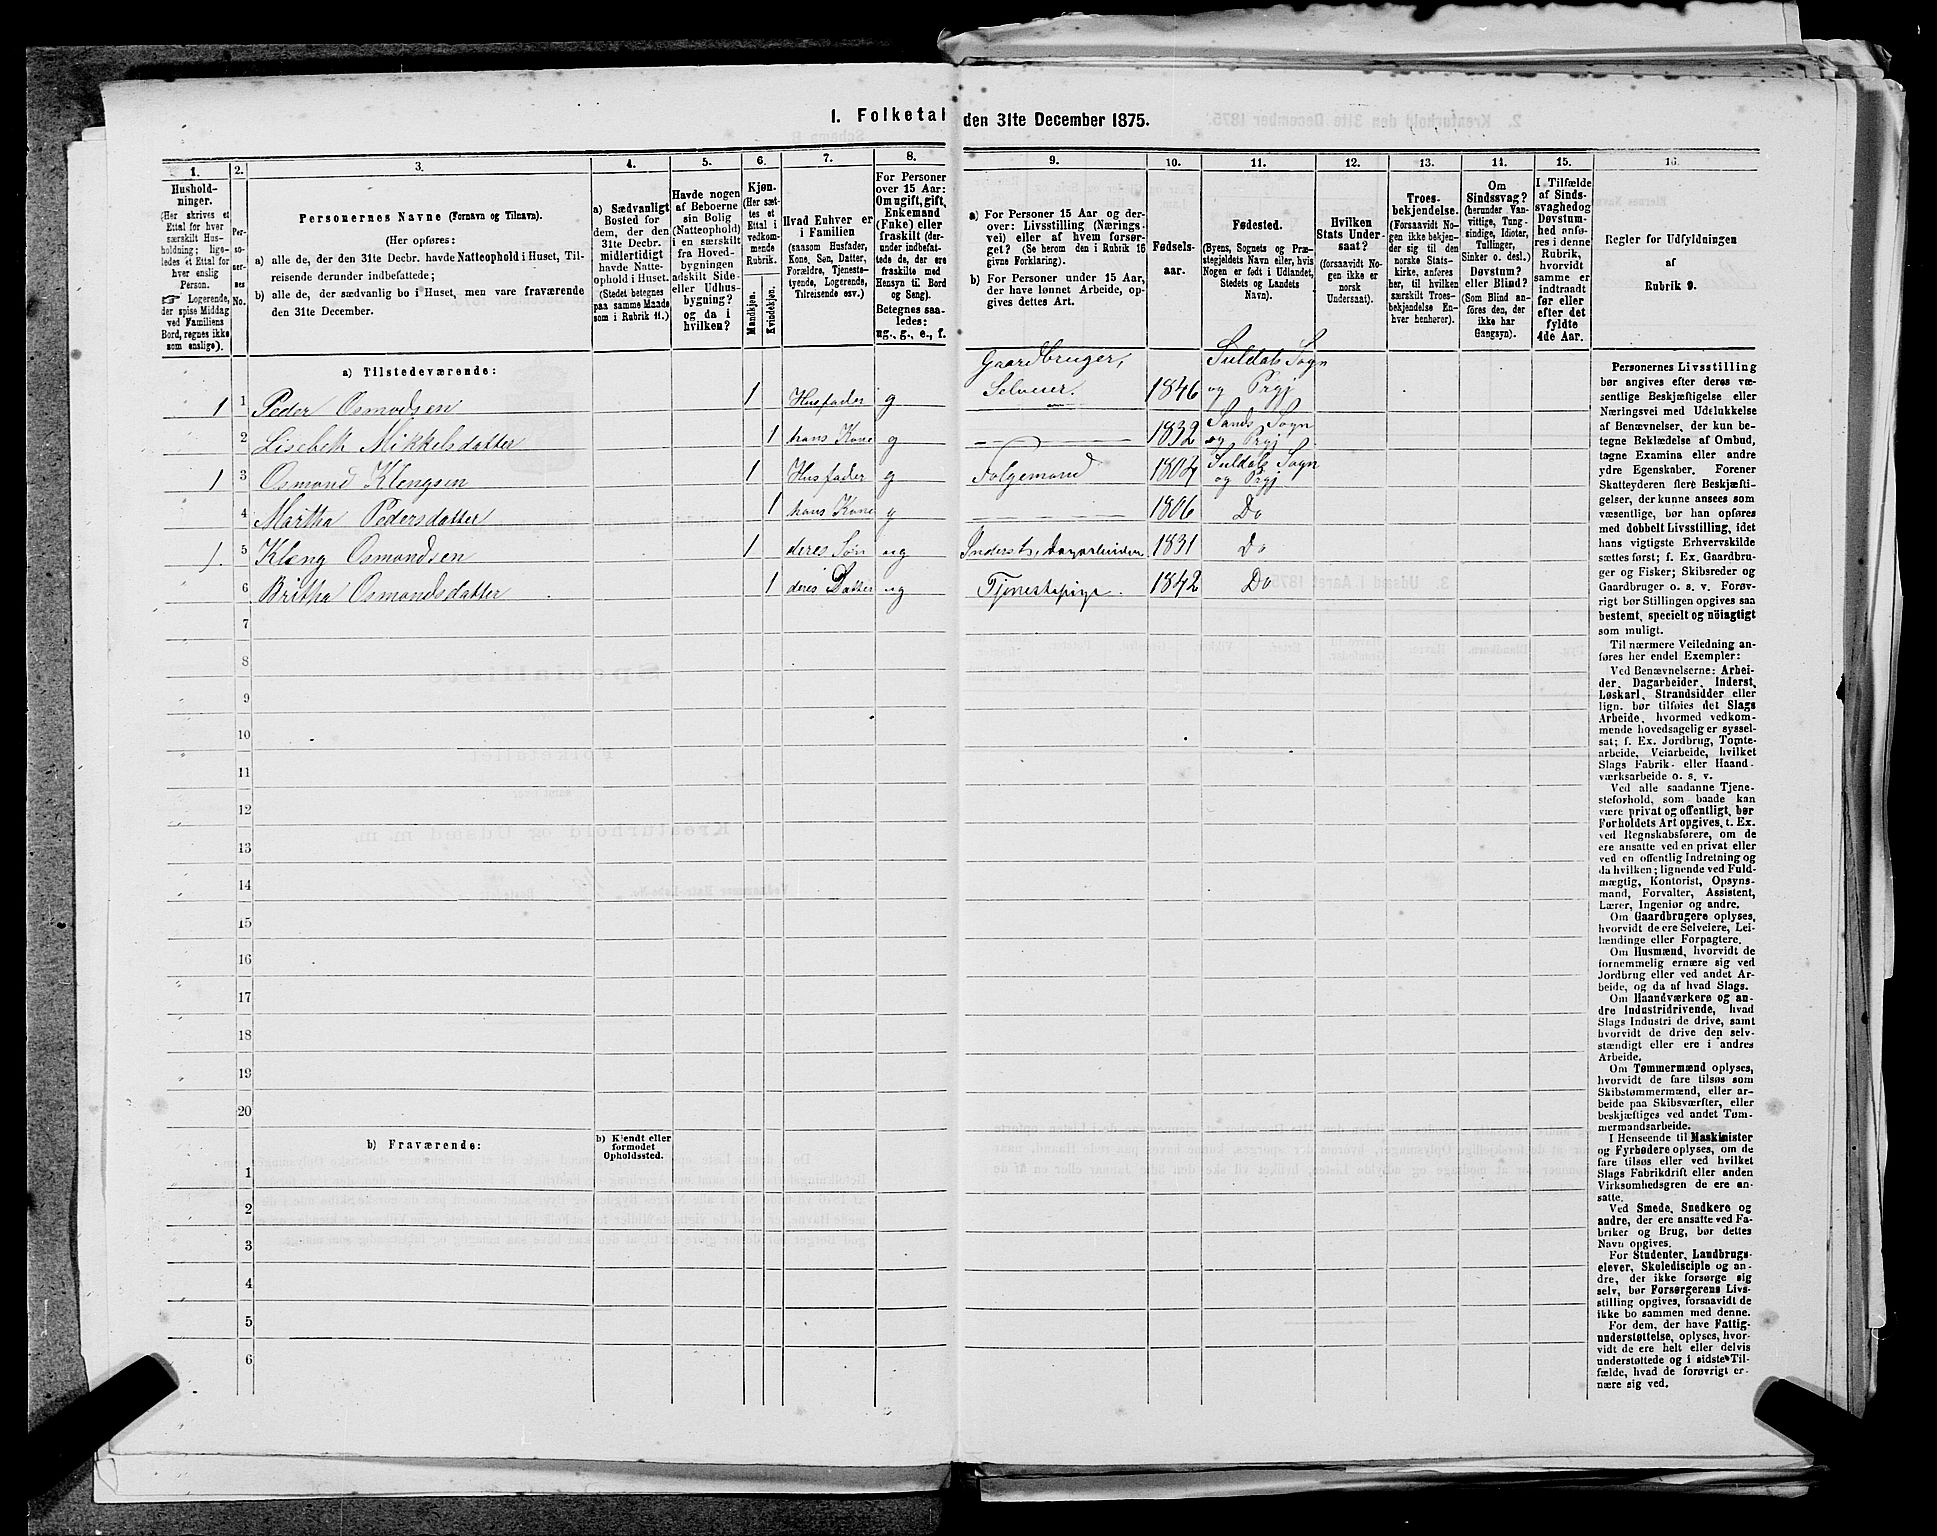 1. Folketal den 31te December 1875.
1.
Hushold-
ninger.
(Her skrives et
Ettal for hver
særskilt Hus-
holdning; lige-
ledes et Ettal for
hver enslig
Person.
☞ Logerende,
der spise Middag
ved Familiens
Bord, regnes ikke
som enslige).
2.
Per-
so-
ner-
nes
No.
3.
Personernes Navne (Fornavn og Tilnavn).
(Her opføres:
a) alle de, der den 31te Decbr. havde Natteophold i Huset, Til-
reisende derunder indbefattede;
b) alle de, der sædvanlig bo i Huset, men vare fraværende
den 31te December.
4.
a) Sædvanligt
Bosted for
dem, der den
31te Decbr.
midlertidigt
havde Natte-
ophold i Huset.
(Stedet betegnes
paa samme Maade
som i Rubrik 11.)
5.
Havde nogen
af Beboerne
sin Bolig
(Natteophold)
i en særskilt
fra Hoved-
bygningen
adskilt Side-
eller Udhus-
bygning?
og da i
hvilken?
6.
Kjøn.
(Her sæt-
tes et
Ettal i
vedkom-
mende
Rubrik.
Mandkjøn.
Kvindekjøn.
7.
Hvad Enhver er
i Familien
(saasom Husfader,
Kone, Søn, Datter,
Forældre, Tjeneste-
tyende, Logerende,
Tilreisende osv.)
8.
For Personer
over 15 Aar:
Om ugift, gift,
Enkemand
(Enke) eller
fraskilt (der-
under indbefat-
tede de, der ere
fraskilte med
Hensyn til Bord
og Seng).
Betegnes saa-
ledes:
ug., g., e., f.
9.
a) For Personer 15 Aar og der-
over: Livsstilling (Nærings-
vei) eller af hvem forsør-
get? (Se herom den i Rubrik 16
givne Forklaring).
b) For Personer under 15 Aar,
der have lønnet Arbeide, op-
gives dettes Art.
10.
Fødsels-
aar.
11.
Fødested.
(Byens, Sognets og Præ-
stegjeldets Navn eller, hvis
Nogen er født i Udlandet,
Stedets og Landets
Navn).
12.
Hvilken
Stats Under-
saat?
(forsaavidt No-
gen ikke er
norsk
Undersaat).
13.
Troes-
bekjendelse.
(Forsaavidt No-
gen ikke bekjen-
der sig til den
norske Stats-
kirke, anføres
her, til hvilken
særskilt Troes-
bekjendelse En-
hver henhører).
14.
Om
Sindssvag?
(herunder Van-
vittige, Tung-
sindige, Idioter,
Tullinger,
Sinker o. desl.)
Døvstum?
eller Blind?
(Som Blind an-
føres den, der
ikke har
Gangsyn).
15.
I Tilfælde
af Sinds-
svaghed og
Døvstum-
hed anfø-
res i denne
Rubrik,
hvorvidt
samme er
indtraadt
før eller
efter det
fyldte
4de Aar.
16.
Regler for Udfyldningen
af
Rubrik 9.
a) Tilstedeværende:
1 1 Peder Osmodsen 1 Husfader g Gaardbruger, Selveier. 1846 Suldals Sogn og Prgj
2 Lisebeth Mikkelsdatter 1 hans Kone g 1832 Sands Sogn og Prgj
1 3 Osmond Klengsen 1 Husfader g Følgemand 1804 Suldals Sogn og Prgj
4 Martha Pedersdatter 1 hans Kone g 1806 Do
1 5 Klæng Osmondsen 1 deres Søn ug Inderst, Dagarbeider 1831 Do
6 Britha Osmondsdatter 1 deres Datter ug Tjenestepige. 1842 Do
7
8
9
10
11
12
13
14
15
16
17
18
19
20
b) Fraværende:
b) Kjendt eller
formodet
Opholdssted.
1
2
3
4
5
6
Personernes Livsstilling
bør angives efter deres væ-
sentlige Beskjæftigelse eller
Næringsvei med Udelukkelse
af Benævnelser, der kun be-
tegne Beklædelse af Ombud,
tagne Examina eller andre
ydre Egenskaber. Forener
Skatteyderen flere Beskjæfti-
gelser, der kunne ansees som
væsentlige, bør han opføres
med dobbelt Livsstilling, idet
hans vigtigste Erhvervskilde
sættes først; f. Ex. Gaardbru-
ger og Fisker; Skibsreder og
Gaardbruger o. s. v. Forøv-
rigt bør Stillingen opgives saa
bestemt, specielt og nöiagtigt
som muligt.
Til nærmere Veiledning an-
føres her endel Exempler:
Ved Benævnelserne: Arbei-
der, Dagarbeider, Inderst,
Løskarl, Strandsidder eller
lign. bør tilføies det Slags
Arbeide, hvormed vedkom-
mende hovedsagelig er syssel-
sat; f. Ex. Jordbrug, Tomte-
arbeide, Veiarbeide, hvilket
Slags Fabrik- eller Haand-
værksarbeide o. s. v.
Ved alle saadanne Tjene-
steforhold, som baade kan
være privat og offentligt, bør
Forholdets Art opgives, t. Ex.
ved Regnskabsførere, om de
ere ansatte ved en privat eller
ved en offentlig Indretning og
da hvilken; lignende ved Fuld-
mægtig, Kontorist, Opsyns-
mand, Forvalter, Assistent,
Lærer, Ingeniør og andre.
Om Gaardbrugere oplyses,
hvorvidt de ere Selveiere, Lei-
lændinge eller Forpagtere.
Om Husmænd, hvorvidt de
fornemmelig ernære sig ved
Jordbrug eller ved andet Ar-
beide, og da af hvad Slags.
Om Haandværkere og an-
dre Industridrivende, hvad
Slags Industri de drive, samt
hvorvidt de drive den selv-
stændigt eller ere i andres
Arbeide.
Om Tømmermænd oplyses,
hvorvidt de fare tilsøs som
Skibstømmermænd, eller ar-
beide paa Skibsværfter, eller
beskjæftiges ved andet Tøm-
mermandsarbeide.
I Henseende til Maskinister
og Fyrbødere oplyses, om de
fare tilsøs eller ved hvilket
Slags Fabrikdrift eller anden
Virksomhedsgren de ere an-
satte.
Ved Smede, Snedkere og
andre, der ere ansatte ved Fa-
briker og Brug, bør dettes
Navn opgives.
For Studenter, Landbrugs-
elever, Skoledisciple og an-
dre, der ikke forsørge sig
selv, bør Forsørgerens Livs-
stilling opgives, forsaavidt de
ikke bo sammen med denne.
For dem, der have Fattig-
understøttelse, oplyses, hvor-
vidt de ere helt eller delvis
understøttede og i sidste Til-
fælde, hvad de forøvrigt er-
nære sig ved.